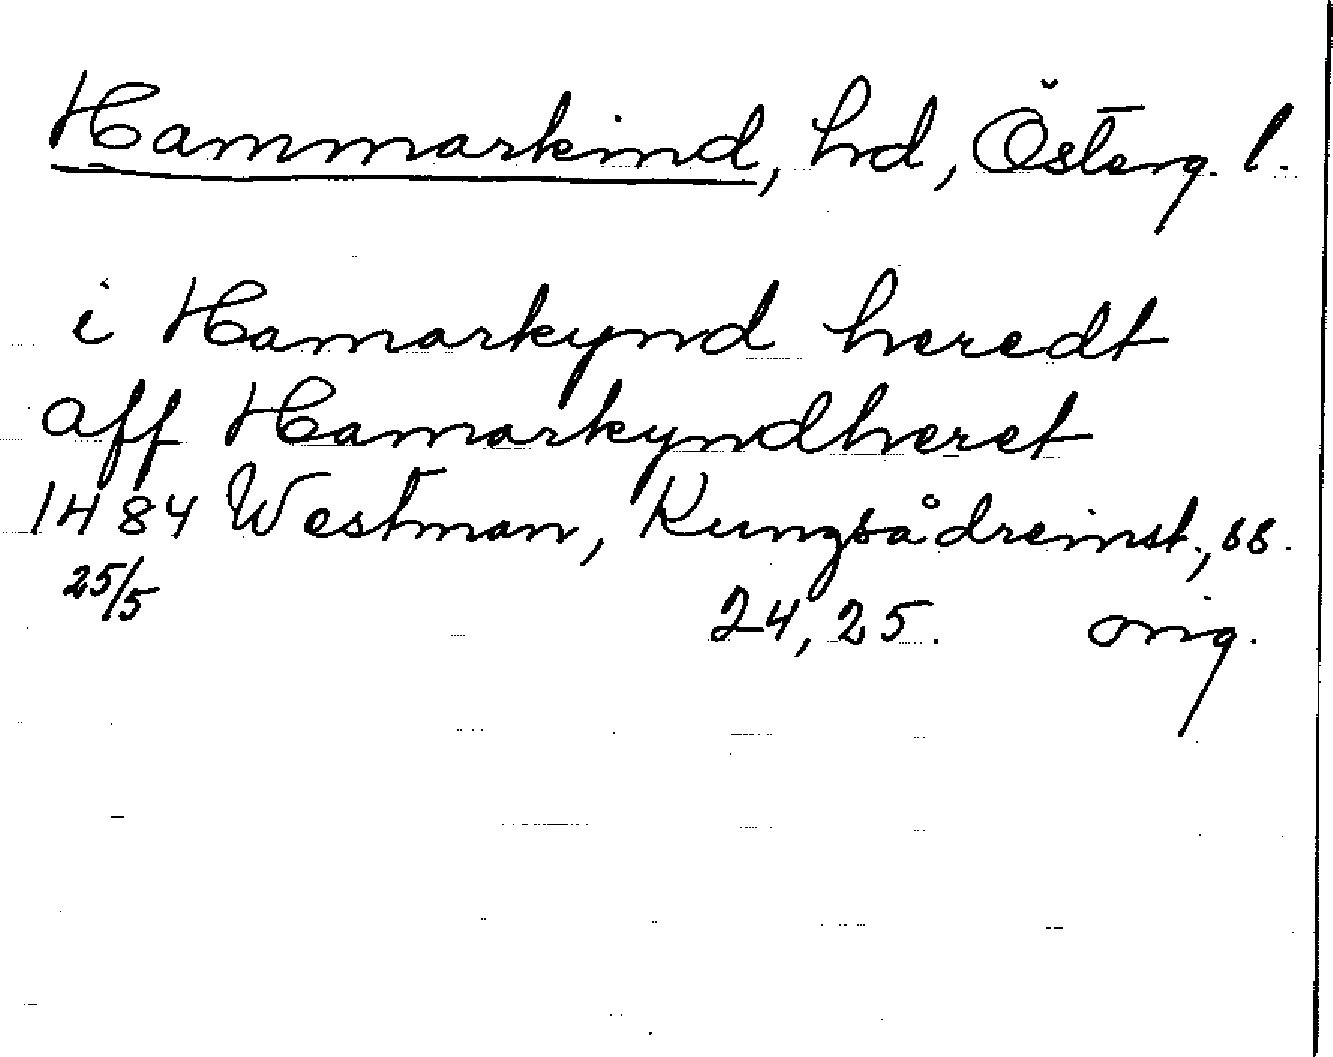 Hammarkind, hd, Österg. l.
i Hamarkynd heredt
aff Hamarkyndheret
1484 Westman, Kungsådreinst., ss.
25/5 24, 25. orig.